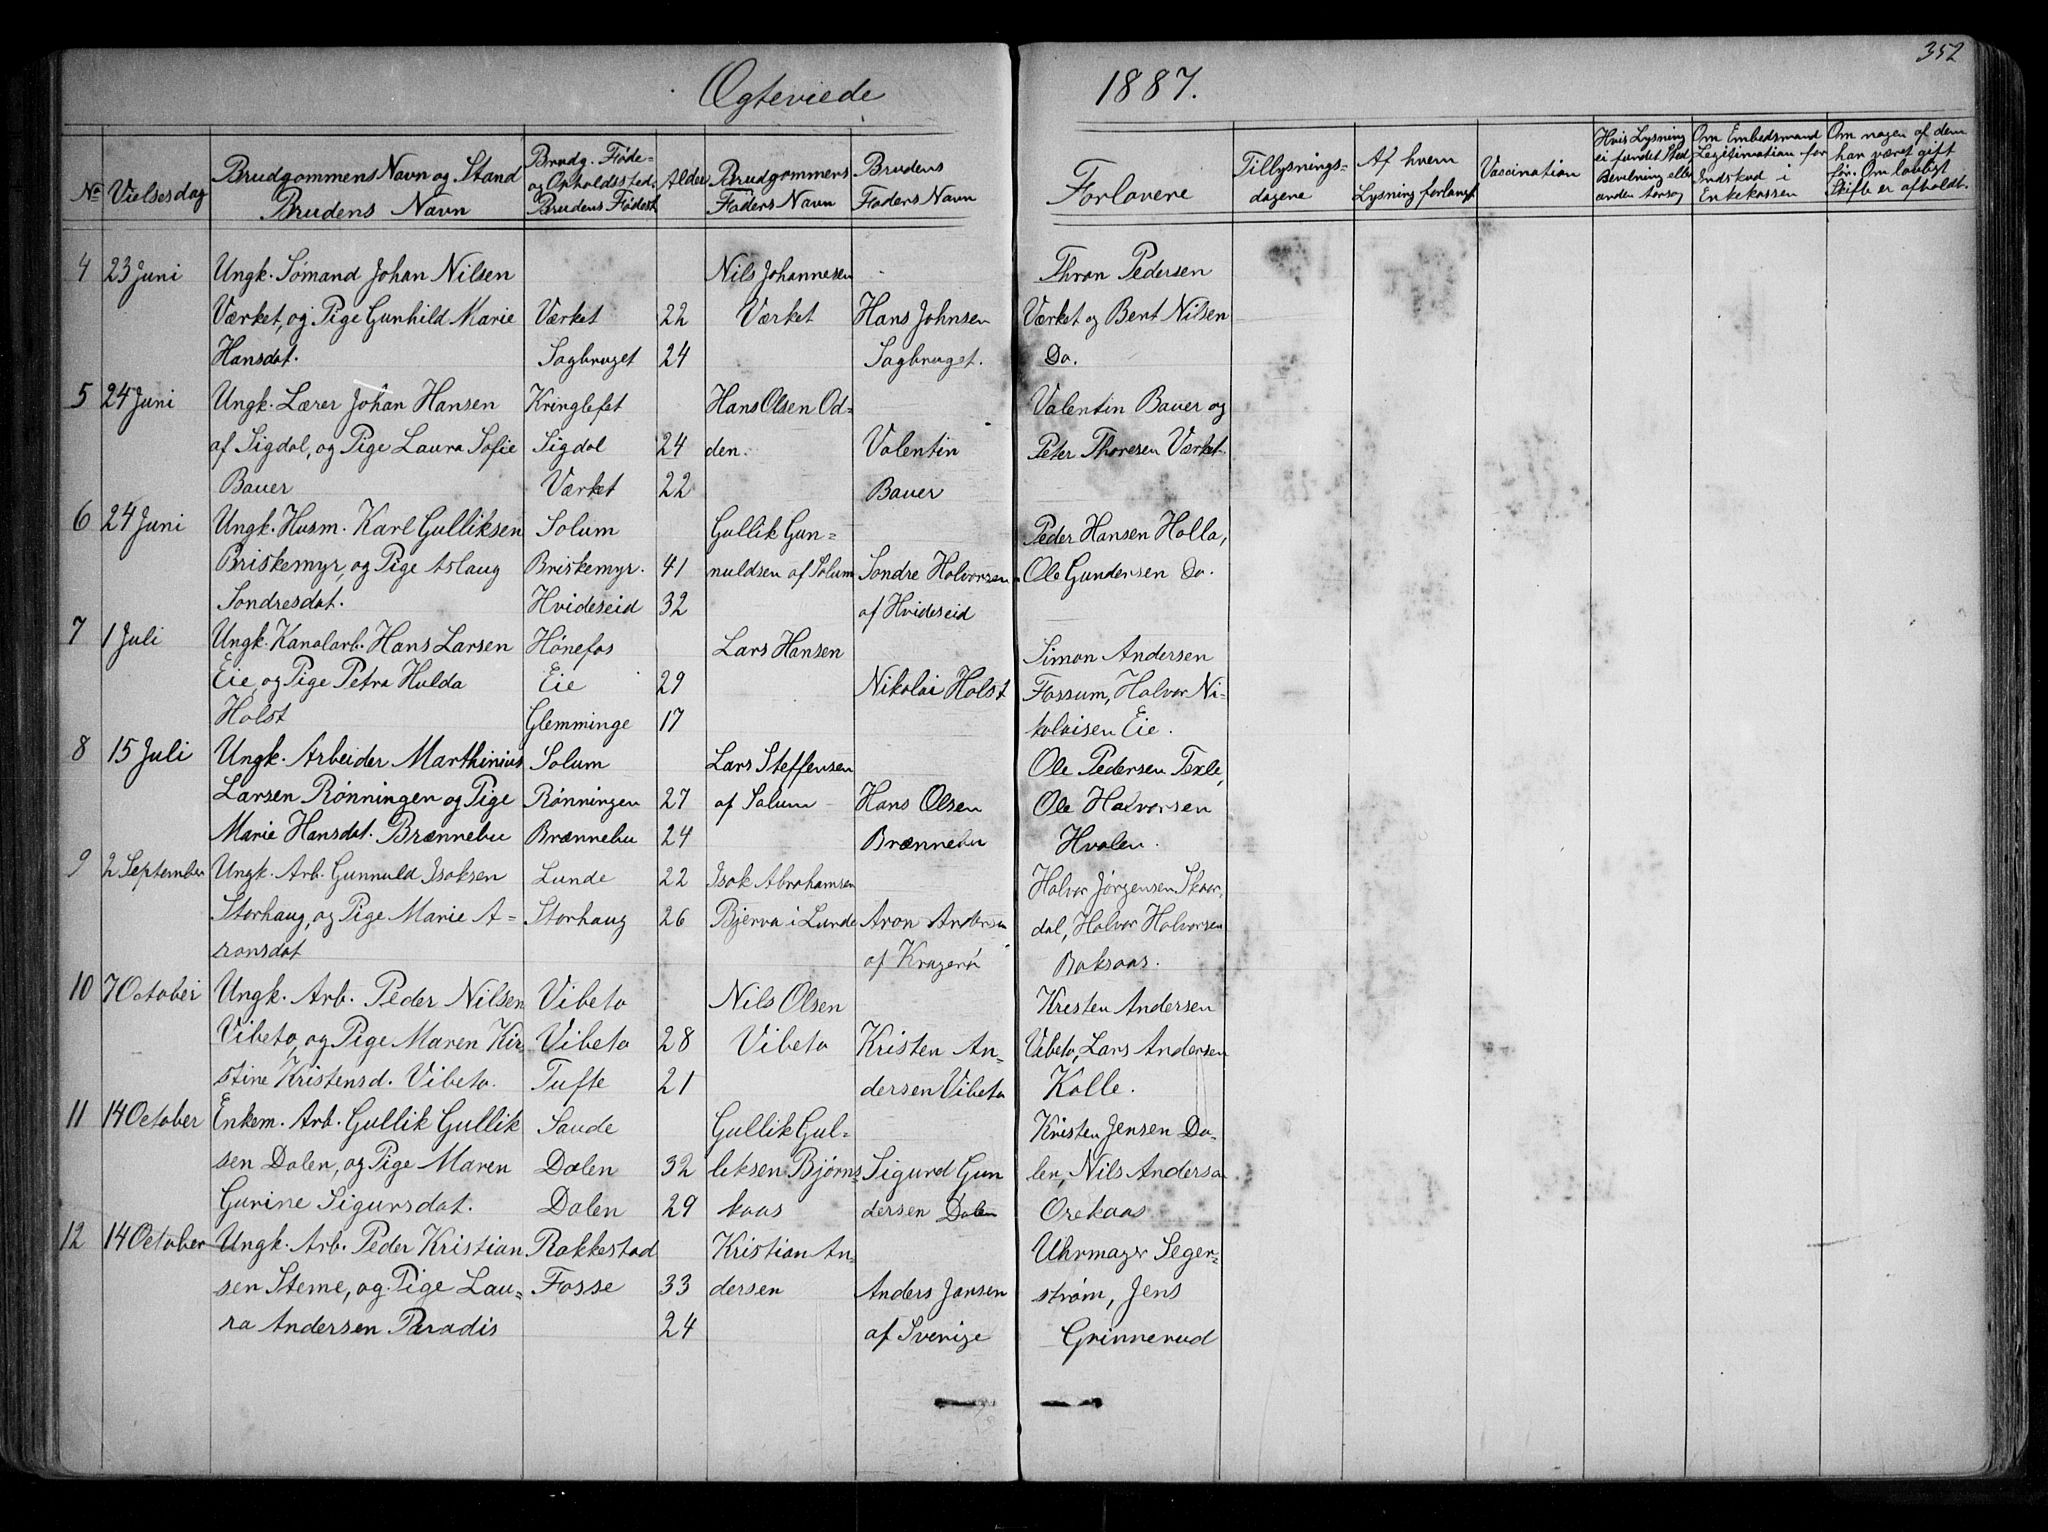 352
Ægteviede 1887.
No Vielsesdag Brudgommens Navn og Stand Brudens Navn
Brudg. Føde- og Opholdssted. Brudens Fødest.
Alder
Brudgommens Faders Navn
Brudens Faders Navn
Forlovere
Tillysnings- dagene
Af hvem Lysning forlangt
Vaccination
Hvis Lysning ei fundet Sted Bevilning eller anden
Om Embedsmand Legitimation for Indskud i Enkekassen
Om nogen af dem har været gift før. Om lovligt Skifte er afholdt.
4 23 Juni Ungk. Sømand Johan Nilsen Nils Johannesen Thron Pedersen
Værket, og Pige Gunhild Marie Værket 22 Værket Hans Johnsen Værket og Bent Nilsen
Hansdat. Sagbruget 24 Sagbruget. Do.
5 24 Juni Ungk. Lærer Johan Hansen Kringlefet Hans Olsen Od- Valentin Bauer og
af Sigdal, og Pige Laura Sofie Sigdal 24 den. Valentin Peter Thoresen Værket.
Bauer Værket 22 Bauer
6 24 Juni Ungk. Husm. Karl Gulliksen Solum Gullik Gun- Peder Hansen Holla,
Briskemyr, og Pige Aslaug Briskemyr. 41 nuldsen af Solum Sondre Halvorsen Ole Gundersen Do.
Sondresdat. Hvideseid 32 af Hvideseid
7 1 Juli Ungk. Kanalarb. Hans Larsen Hønefos Lars Hansen Simon Andersen
Eie, og Pige Petra Hulda Eie 29 Nikolai Holst Fossum, Halvor Ni-
Holst Glemminge 17 kolaisen Eie.
8 15 Juli Ungk. Arbeider Marthinius Solum Lars Steffensen Ole Pedersen Texle,
Larsen Rønningen og Pige Rønningen 27 af Solum Hans Olsen Ole Halvorsen
Marie Hansdat. Brænnebu Brænnebu 24 Brænnebu Hvalen.
9 2 September Ungk. Arb. Gunnuld Isaksen Lunde 22 Isak Abrahamsen Halvor Jørgensen Skaar,
Storhaug, og Pige Marie A- Storhaug 26 Bjerva i Lunde Aron Andersen dal, Halvor Halvorsen
ronsdat af Kragerø Baksaas.
10 7 October Ungk. Arb. Peder Nilsen Vibeto Nils Olsen Kristen Andersen
Vibeto, og Pige Maren Kir- Vibeto 28 Vibeto Kristen An- Vibeto, Lars Andersen
stine Kristensd. Vibeto. Tufte 21 dersen Vibeto Kolle.
11 14 October Enkem. Arb. Gullik Gullik Saude Gullik Gul- Kristen Jensen Da-
sen Dalen, og Pige Maren Dalen 32 leksen Bjørns- Sigurd Gun len, Nils Anderse
Gurine Sigursdat. Dalen 29 kaas dersen Dalen Orekaas
12 14 October Ungk. Arb. Peder Kristian Rakkestad Kristian An- Uhrmager Seger-
sen Steme, og Pige Lau- Fosse 33 dersen Anders Jansen strøm, Jens
ra Andersen Paradis 24 af Sverige Grinnerud